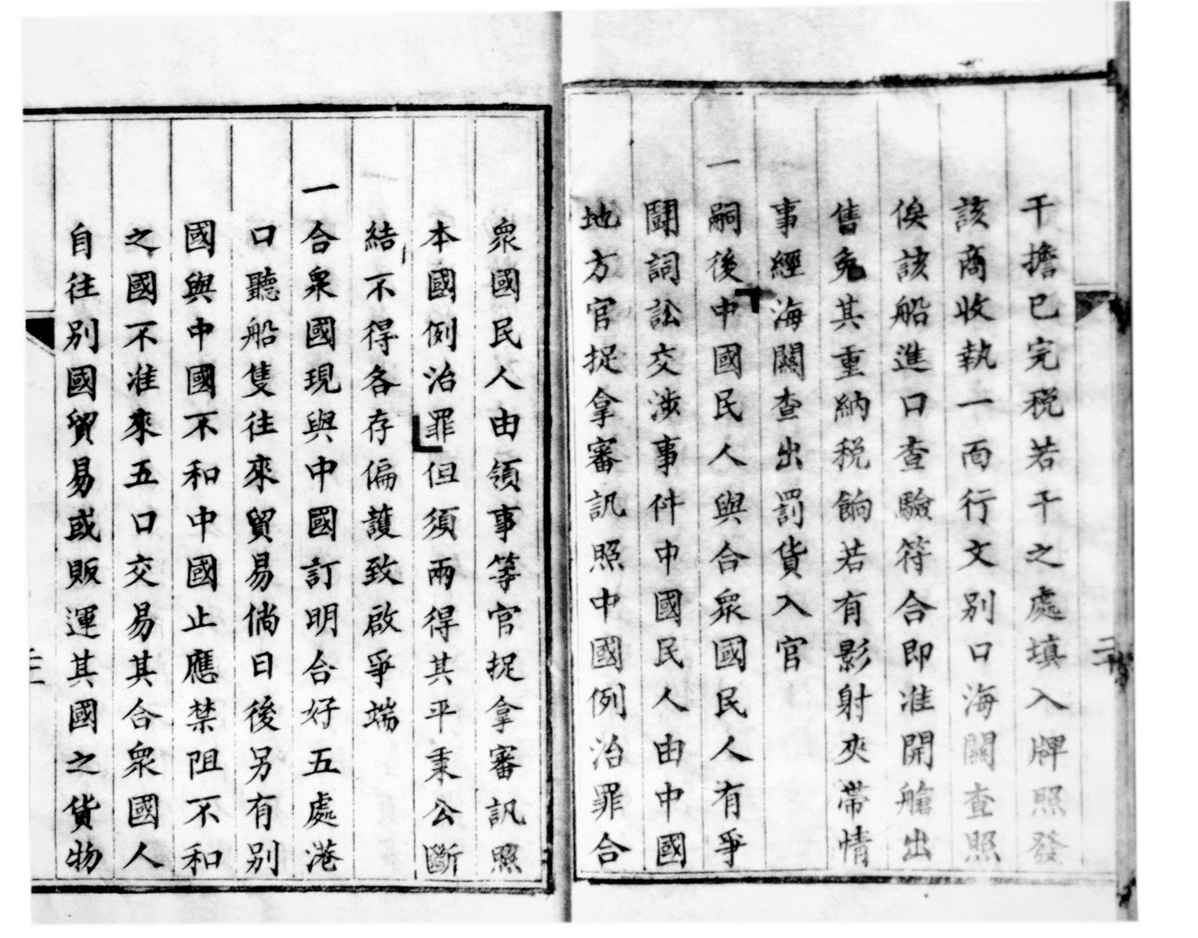 干擔已完税若干之處填入牌照發
該商收執一面行文別口海關查照
俟該船進口查驗符合即准開艙出
售免其重納税餉若有影射夾帶情
事經海關查出罰貨入官
一嗣後中國民人與合衆國民人有爭
鬪詞訟交涉事件中國民人由中國
地方官捉拿審訊照中國例治罪合
衆國民人由領事等官捉拿審訊照
本國例治罪但須兩得其平秉公斷
結不得各存偏護致啟爭端
一合衆國現與中國訂明合好五處港
口聽船隻往來貿易倘日後另有別
國與中國不和中國止應禁阻不和
之國不准來五口交易其合衆國人
自往別國貿易或販運其國之貨物